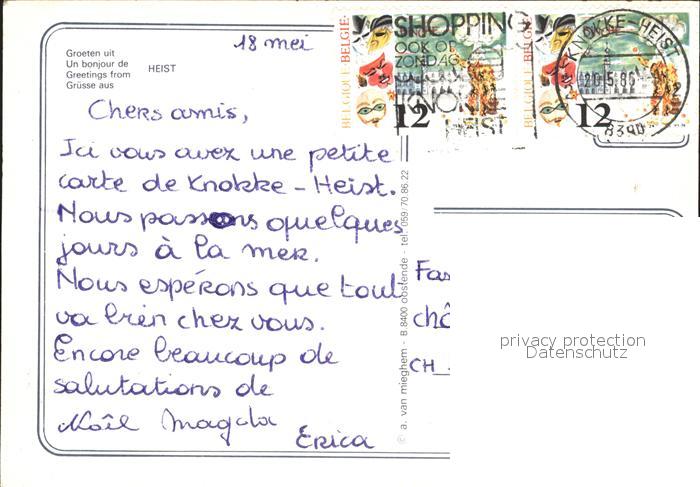 18 mei
SHOPPING
OOK OP
ZONDAG
KNOKKE
HEIST
BELGIQUE·BELGIE
12
BELGIQUE·BELGIE
12
KNOKKE-HEIST
20.5.86
8390
Groeten uit
Un bonjour de
Greetings from
Grüsse aus
HEIST
Chers amis,
Ici vous avez une petite
carte de Knokke - Heist.
Nous passons quelques
jours à la mer.
Nous espérons que tout
va bien chez vous.
Encore beaucoup de
salutations de
Noël Magda
Erica
© a. van mieghem - B 8400 oostende - tel. 059/70.86.22
Fas
châ
CH_
privacy protection
Datenschutz